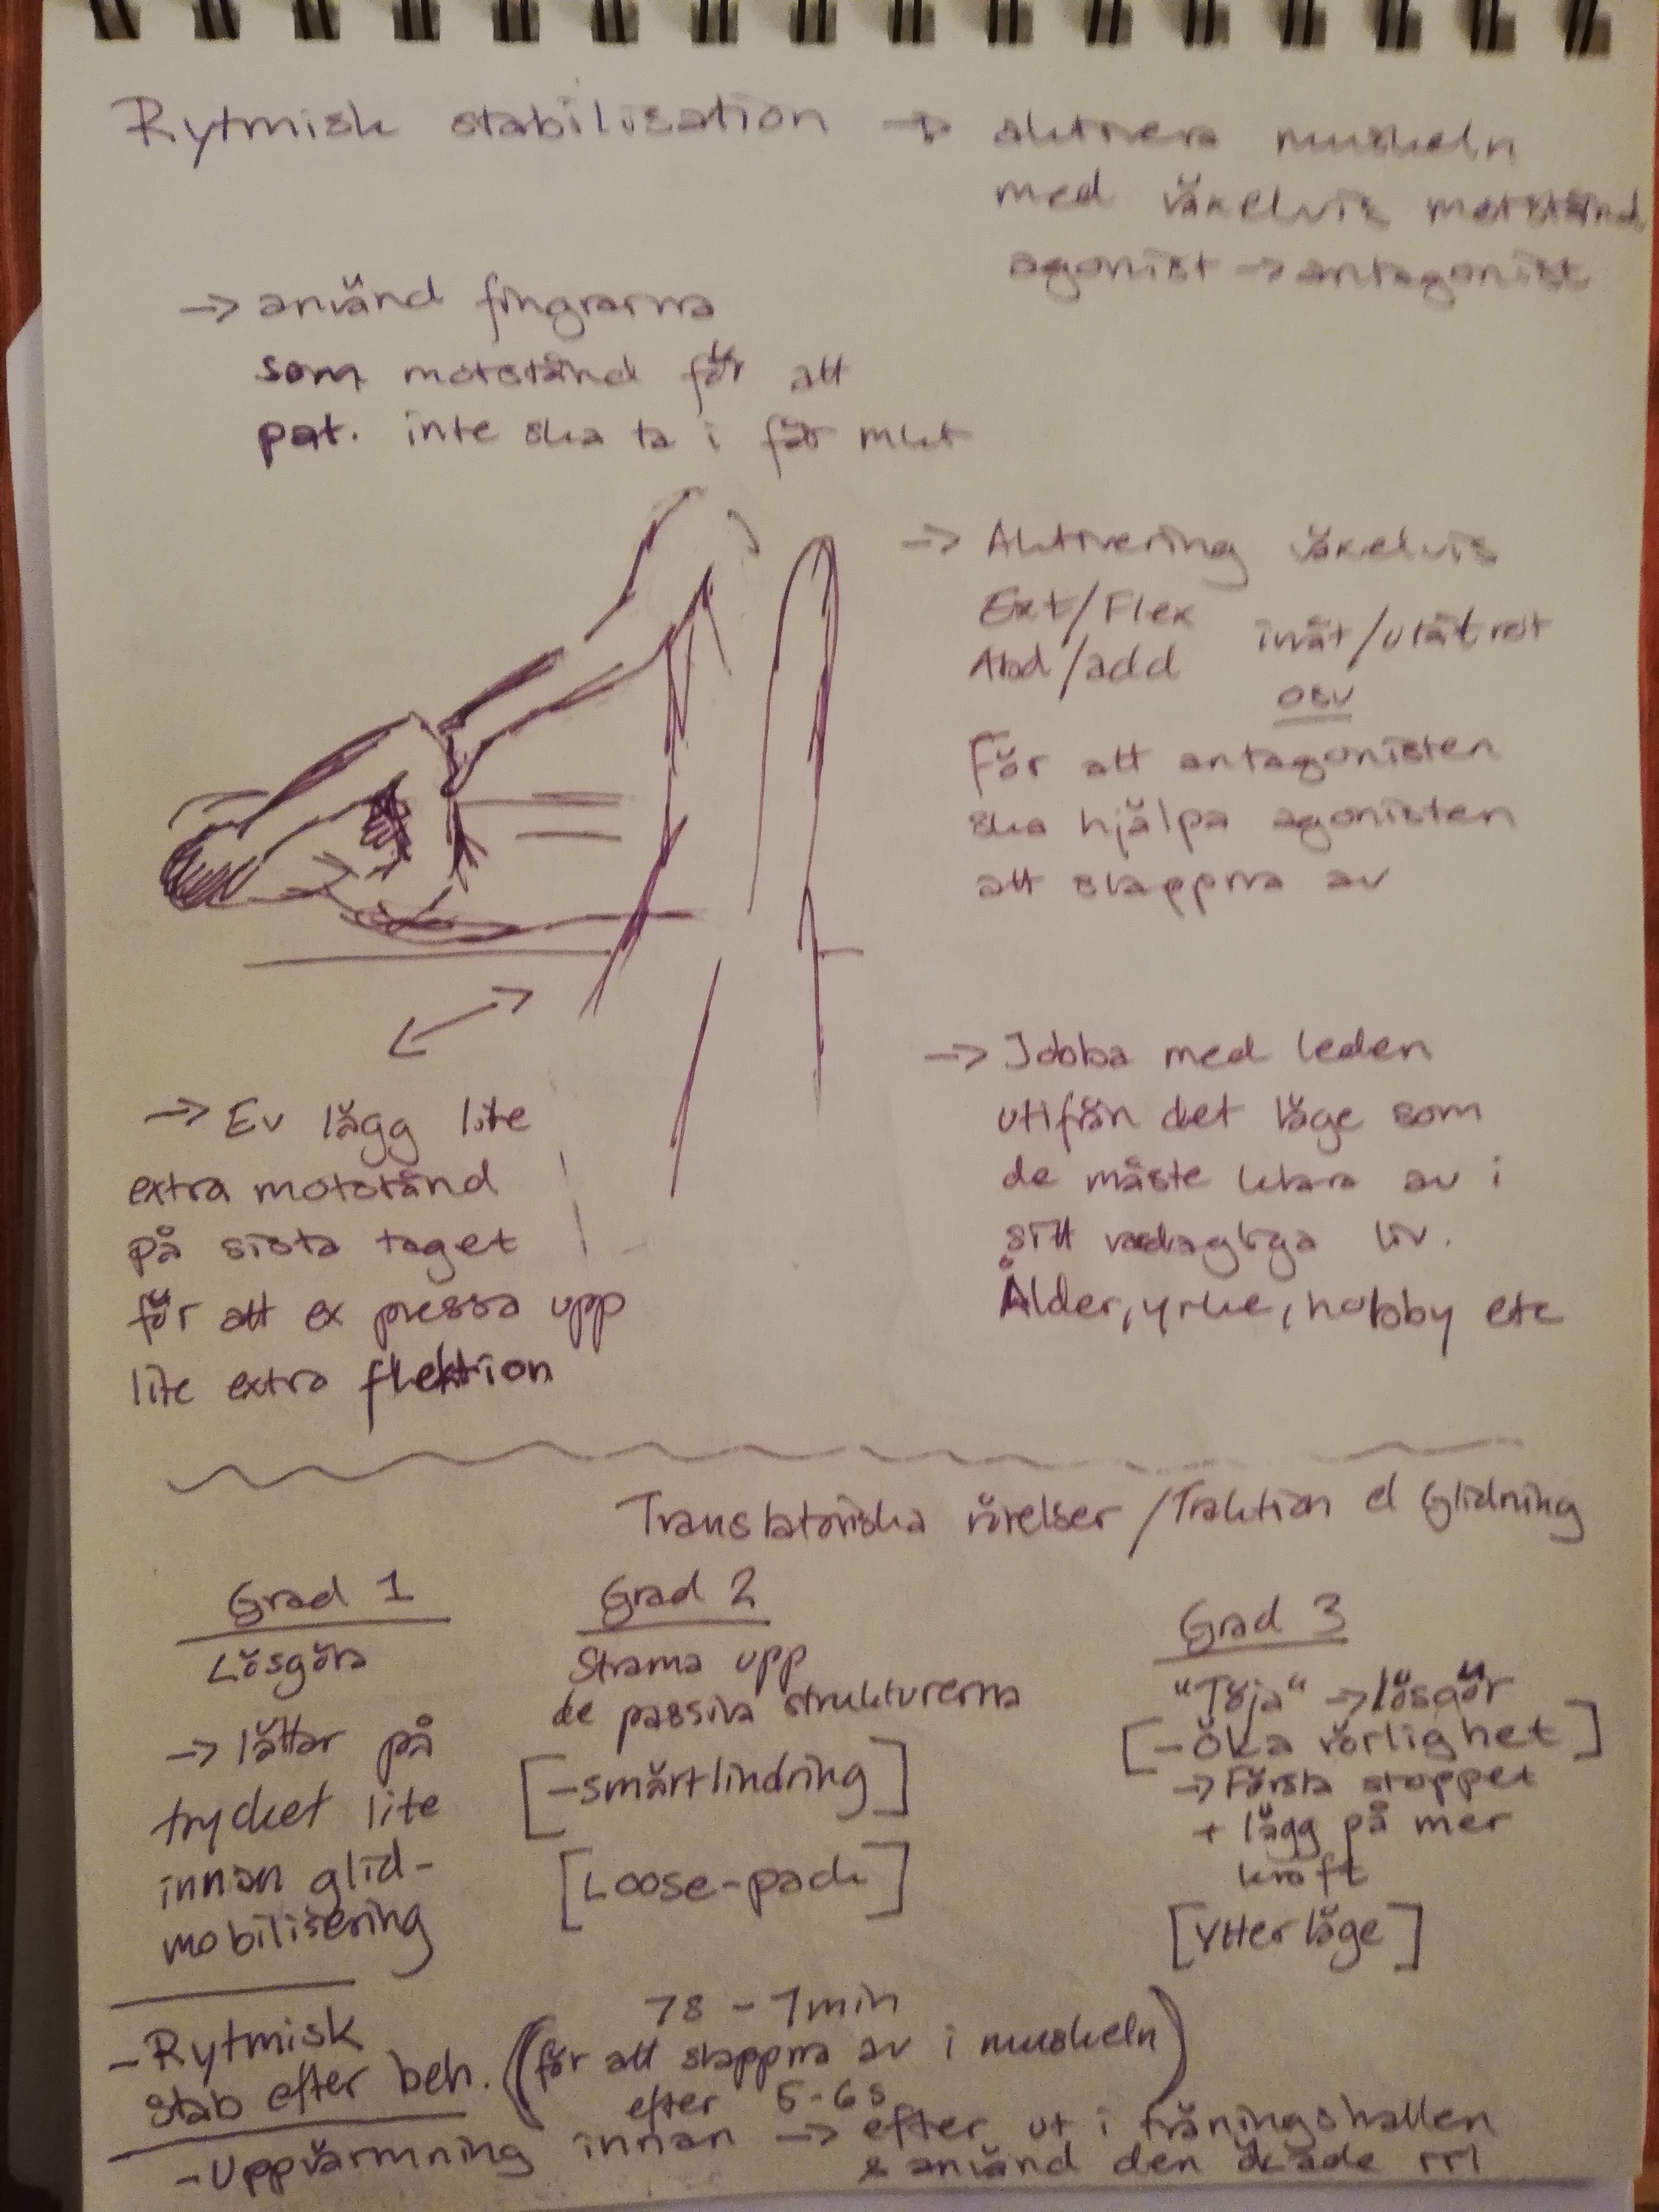 Rytmisk stabilisation → aktivera muskeln
med växelvis motstånd
agonist → antagonist
→ använd fingrarna
som motstånd för att
pat. inte ska ta i för mkt
→ Aktivering växelvis
Ext/Flex
Abd/add
inåt/utåtrot
osv
För att antagonisten
ska hjälpa agonisten
att slappna av
→ Jobba med leden
utifrån det läge som
de måste klara av i
sitt vardagliga liv.
Ålder, yrke, hobby etc
→ Ev lägg lite
extra motstånd
på sista taget
för att ex pressa upp
lite extra flektion
Translatoriska rörelser / Traktion el Glidning
Grad 1
Lösgöra
→ lättar på
trycket lite
innan glid-
mobilisering
Grad 2
Strama upp
de passiva strukturerna
[-smärtlindring]
[Loose-pack]
Grad 3
"Töja" → lösgör
[-Öka rörlighet]
→ Första stoppet
+ lägg på mer
kraft
[Ytterläge]
-Rytmisk
stab efter beh.
7s - 1min
(för att slappna av i muskeln)
efter 5-6s
-Uppvärmning innan → efter ut i träningshallen
& använd den ökade rrl